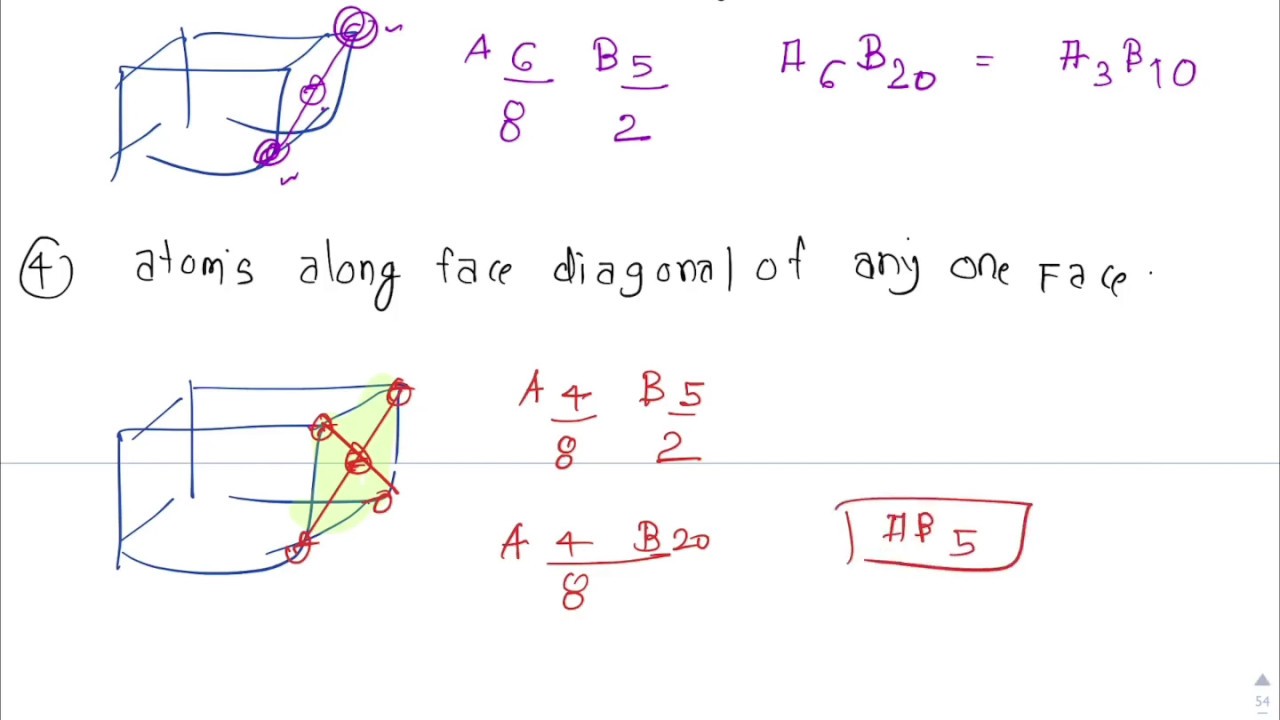 A 6/8 B 5/2 A6B20 = A3B10
④ atoms along face diagonal of any one Face.
A 4/8 B 5/2
A 4 B20 / 8 AB5
54